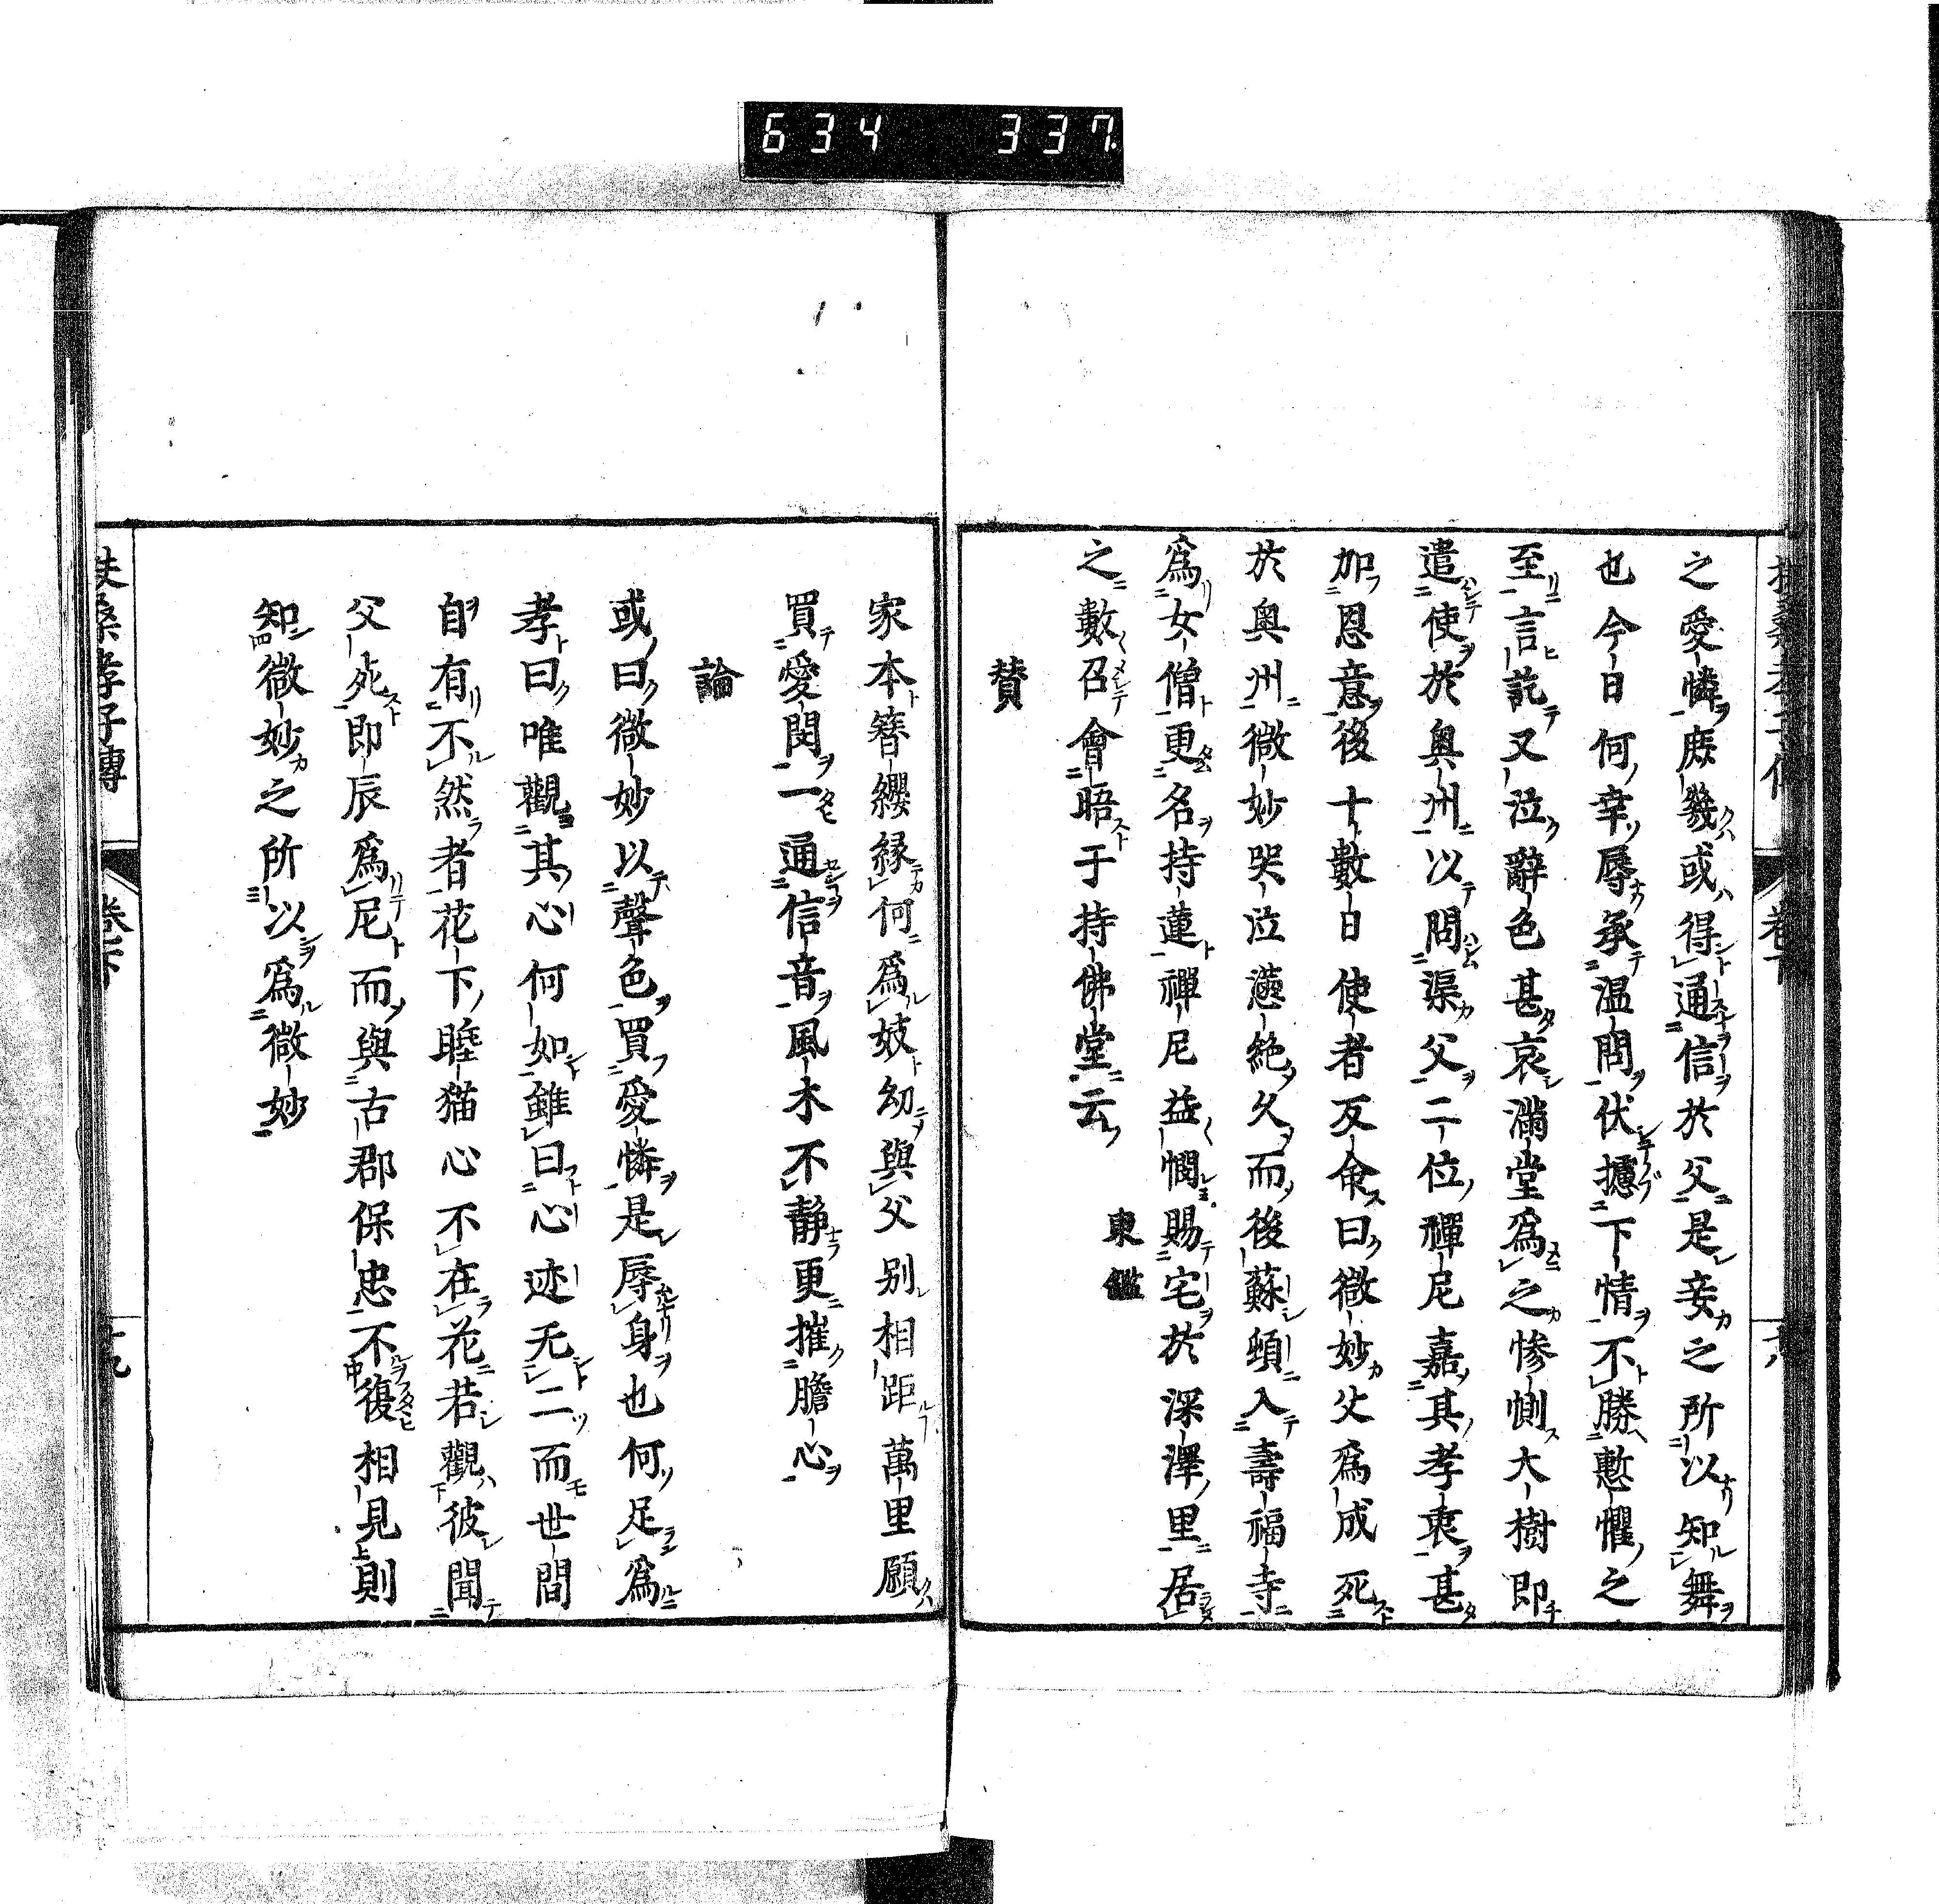 634 337
之愛憐庶幾或得通信於父是妾之所以知舞
也今日何幸辱承温問伏攄下情不勝慙懼之
至言訖又泣辭色甚哀滿堂爲之惨惻大樹即
遣使於奥州以問渠父二位禪尼嘉其孝衷甚
加恩意後十數日使者反命曰微妙父爲成死
於奥州微妙哭泣懣絶久而後蘇頓入壽福寺
爲女僧更名持蓮禪尼益憫賜宅於深澤里居
之數召會晤于持佛堂云 東鑑
賛
家本簪纓縁何爲妓幼與父别相距萬里願
買愛閔一通信音風木不静更摧膽心
論
或曰微妙以聲色買愛憐是辱身也何足爲
孝曰唯觀其心何如雖曰心迹无二而世間
自有不然者花下睡猫心不在花若觀彼聞
父死即辰爲尼而與古郡保忠不復相見則
知微妙之所以爲微妙
扶桑孝子傳 卷下 十九